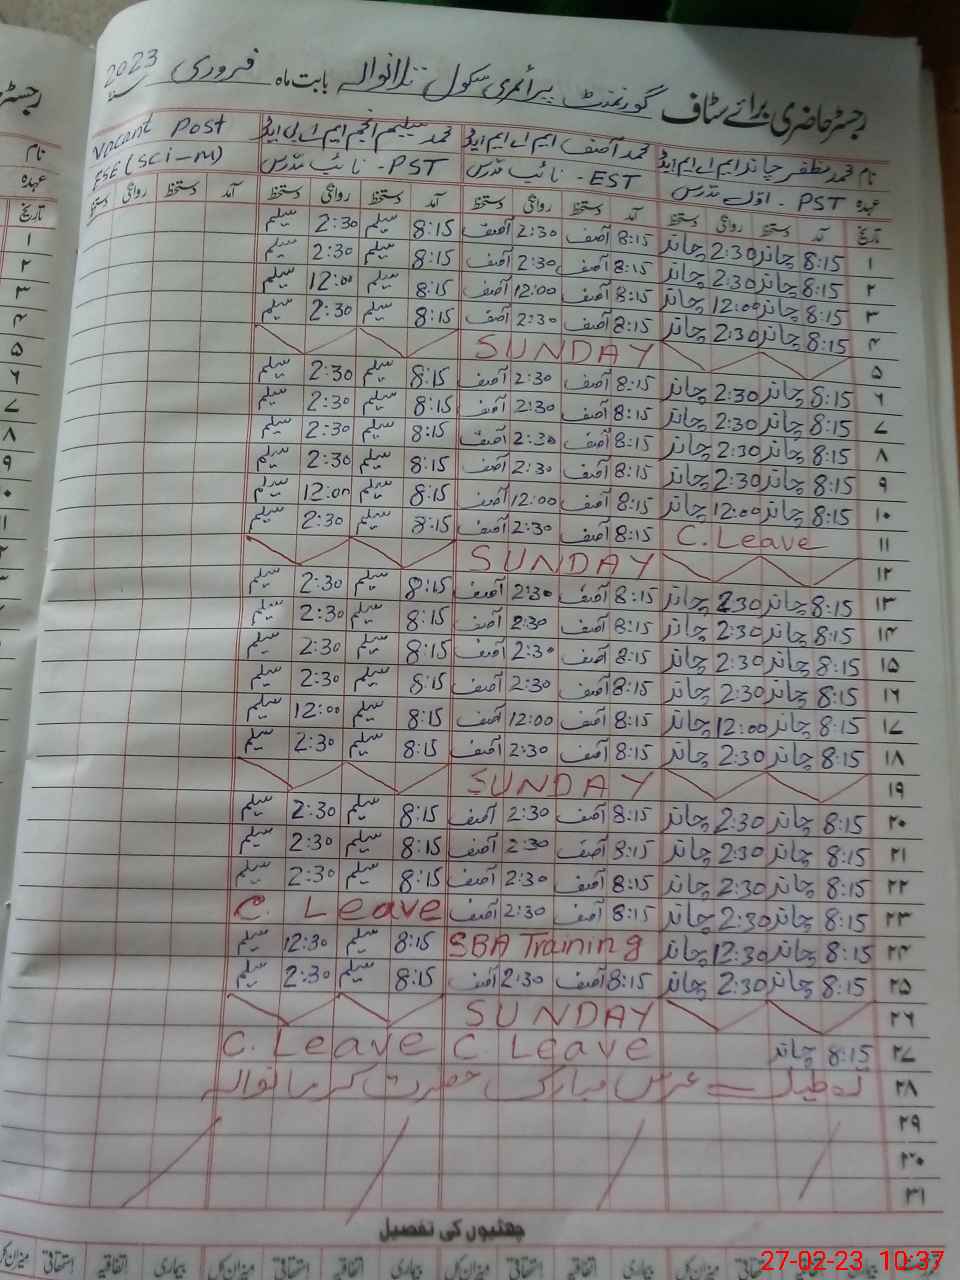 رجسٹر حاضری برائے سٹاف گورنمنٹ پرائمری سکول تلانوالہ بابت ماہ فروری 2023
نام محمد مظفر چاند ایم اے ایم ایڈ محمد آصف ایم اے ایم ایڈ محمد سلیم انجم ایم اے بی ایڈ Vacant Post
عہدہ PST - اوّل مدرس EST - نائب مدرس PST - نائب مدرس ESE (SCI-M)
تاریخ آمد دستخط روانگی دستخط آمد دستخط روانگی دستخط آمد دستخط روانگی دستخط آمد دستخط روانگی دستخط
۱ 8:15 چاند 2:30 چاند 8:15 آصف 2:30 آصف 8:15 سلیم 2:30 سلیم
۲ 8:15 چاند 2:30 چاند 8:15 آصف 2:30 آصف 8:15 سلیم 2:30 سلیم
۳ 8:15 چاند 12:00 چاند 8:15 آصف 12:00 آصف 8:15 سلیم 12:00 سلیم
۴ 8:15 چاند 2:30 چاند 8:15 آصف 2:30 آصف 8:15 سلیم 2:30 سلیم
۵ SUNDAY
۶ 8:15 چاند 2:30 چاند 8:15 آصف 2:30 آصف 8:15 سلیم 2:30 سلیم
۷ 8:15 چاند 2:30 چاند 8:15 آصف 2:30 آصف 8:15 سلیم 2:30 سلیم
۸ 8:15 چاند 2:30 چاند 8:15 آصف 2:30 آصف 8:15 سلیم 2:30 سلیم
۹ 8:15 چاند 2:30 چاند 8:15 آصف 2:30 آصف 8:15 سلیم 2:30 سلیم
۱۰ 8:15 چاند 12:00 چاند 8:15 آصف 12:00 آصف 8:15 سلیم 12:00 سلیم
۱۱ C. Leave 8:15 آصف 2:30 آصف 8:15 سلیم 2:30 سلیم
۱۲ SUNDAY
۱۳ 8:15 چاند 2:30 چاند 8:15 آصف 2:30 آصف 8:15 سلیم 2:30 سلیم
۱۴ 8:15 چاند 2:30 چاند 8:15 آصف 2:30 آصف 8:15 سلیم 2:30 سلیم
۱۵ 8:15 چاند 2:30 چاند 8:15 آصف 2:30 آصف 8:15 سلیم 2:30 سلیم
۱۶ 8:15 چاند 2:30 چاند 8:15 آصف 2:30 آصف 8:15 سلیم 2:30 سلیم
۱۷ 8:15 چاند 12:00 چاند 8:15 آصف 12:00 آصف 8:15 سلیم 12:00 سلیم
۱۸ 8:15 چاند 2:30 چاند 8:15 آصف 2:30 آصف 8:15 سلیم 2:30 سلیم
۱۹ SUNDAY
۲۰ 8:15 چاند 2:30 چاند 8:15 آصف 2:30 آصف 8:15 سلیم 2:30 سلیم
۲۱ 8:15 چاند 2:30 چاند 8:15 آصف 2:30 آصف 8:15 سلیم 2:30 سلیم
۲۲ 8:15 چاند 2:30 چاند 8:15 آصف 2:30 آصف 8:15 سلیم 2:30 سلیم
۲۳ 8:15 چاند 2:30 چاند 8:15 آصف 2:30 آصف C. Leave
۲۴ 8:15 چاند 12:30 چاند SBA Training 8:15 سلیم 12:30 سلیم
۲۵ 8:15 چاند 2:30 چاند 8:15 آصف 2:30 آصف 8:15 سلیم 2:30 سلیم
۲۶ SUNDAY
۲۷ 8:15 چاند C. Leave C. Leave
۲۸ تعطیل عرس مبارک حضرت کرمانوالہ
۲۹
۳۰
۳۱
چھٹیوں کی تفصیل
اتفاقیہ بیماری میزان کل استحقاقی اتفاقیہ بیماری میزان کل استحقاقی اتفاقیہ بیماری میزان کل استحقاقی اتفاقیہ بیماری استحقاقی میزان کل
27-02-23 10:37